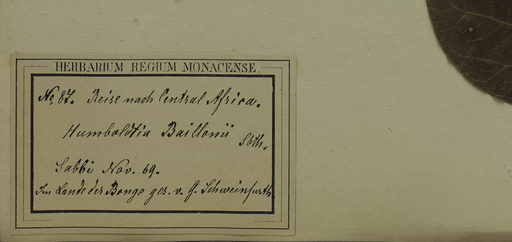 HERBARIUM REGIUM MONACENSE.
No 87. Reise nach Central Africa.
Humboldtia Baillonii
Sabbi Nov. 69.
Im Lande der Bongo ges. v. G. Schweinfurth